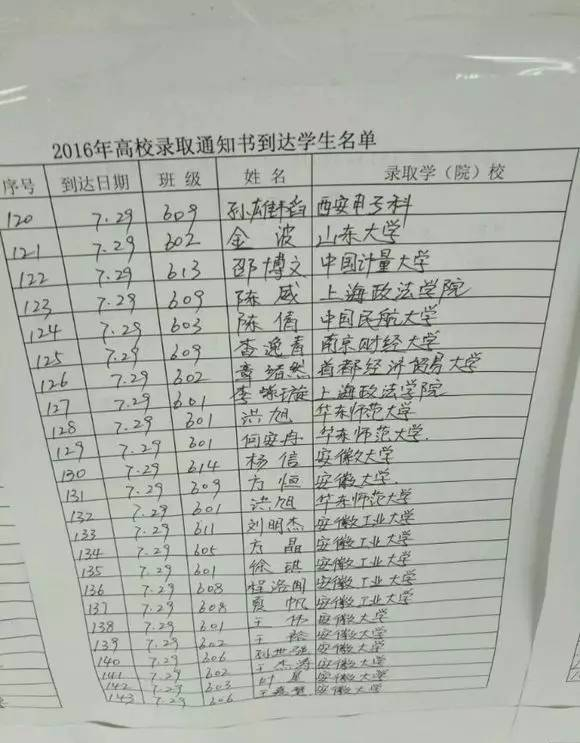 2016年高校录取通知书到达学生名单
序号 到达日期 班 级 姓 名 录取学（院）校
120 7.29 609 孙雄韬 西安电子科
121 7.29 602 金 波 山东大学
122 7.29 613 邵博文 中国计量大学
123 7.29 609 陈 威 上海政法学院
124 7.29 603 陈 倩 中国民航大学
125 7.29 609 查逸青 南京财经大学
126 7.29 602 章 然 首都经济贸易大学
127 7.29 601 李 璇 上海政法学院
128 7.29 601 洪旭 华东师范大学
129 7.29 601 何安舟 华东师范大学.
130 7.29 614 杨 信 安徽大学
131 7.29 609 方 恒 安徽大学.
132 7.29 601 洪旭 华东师范大学
133 7.29 611 刘明杰 安徽工业大学
134 7.29 605 方 晶 安徽工业大学
135 7.29 601 徐 琪 安徽工业大学
136 7.29 608 程洛 安徽工业大学
137 7.29 608 夏 帆 安徽工业大学
138 7.29 601 王 伟 安徽大学
139 7.29 602 王 安徽大学
140 7.29 606 孙世强 安徽大学
141 7.29 602 王杰涛 安徽大学
142 7.29 603 叶 星 安徽大学
143 7.29 606 王 慧 安徽大学